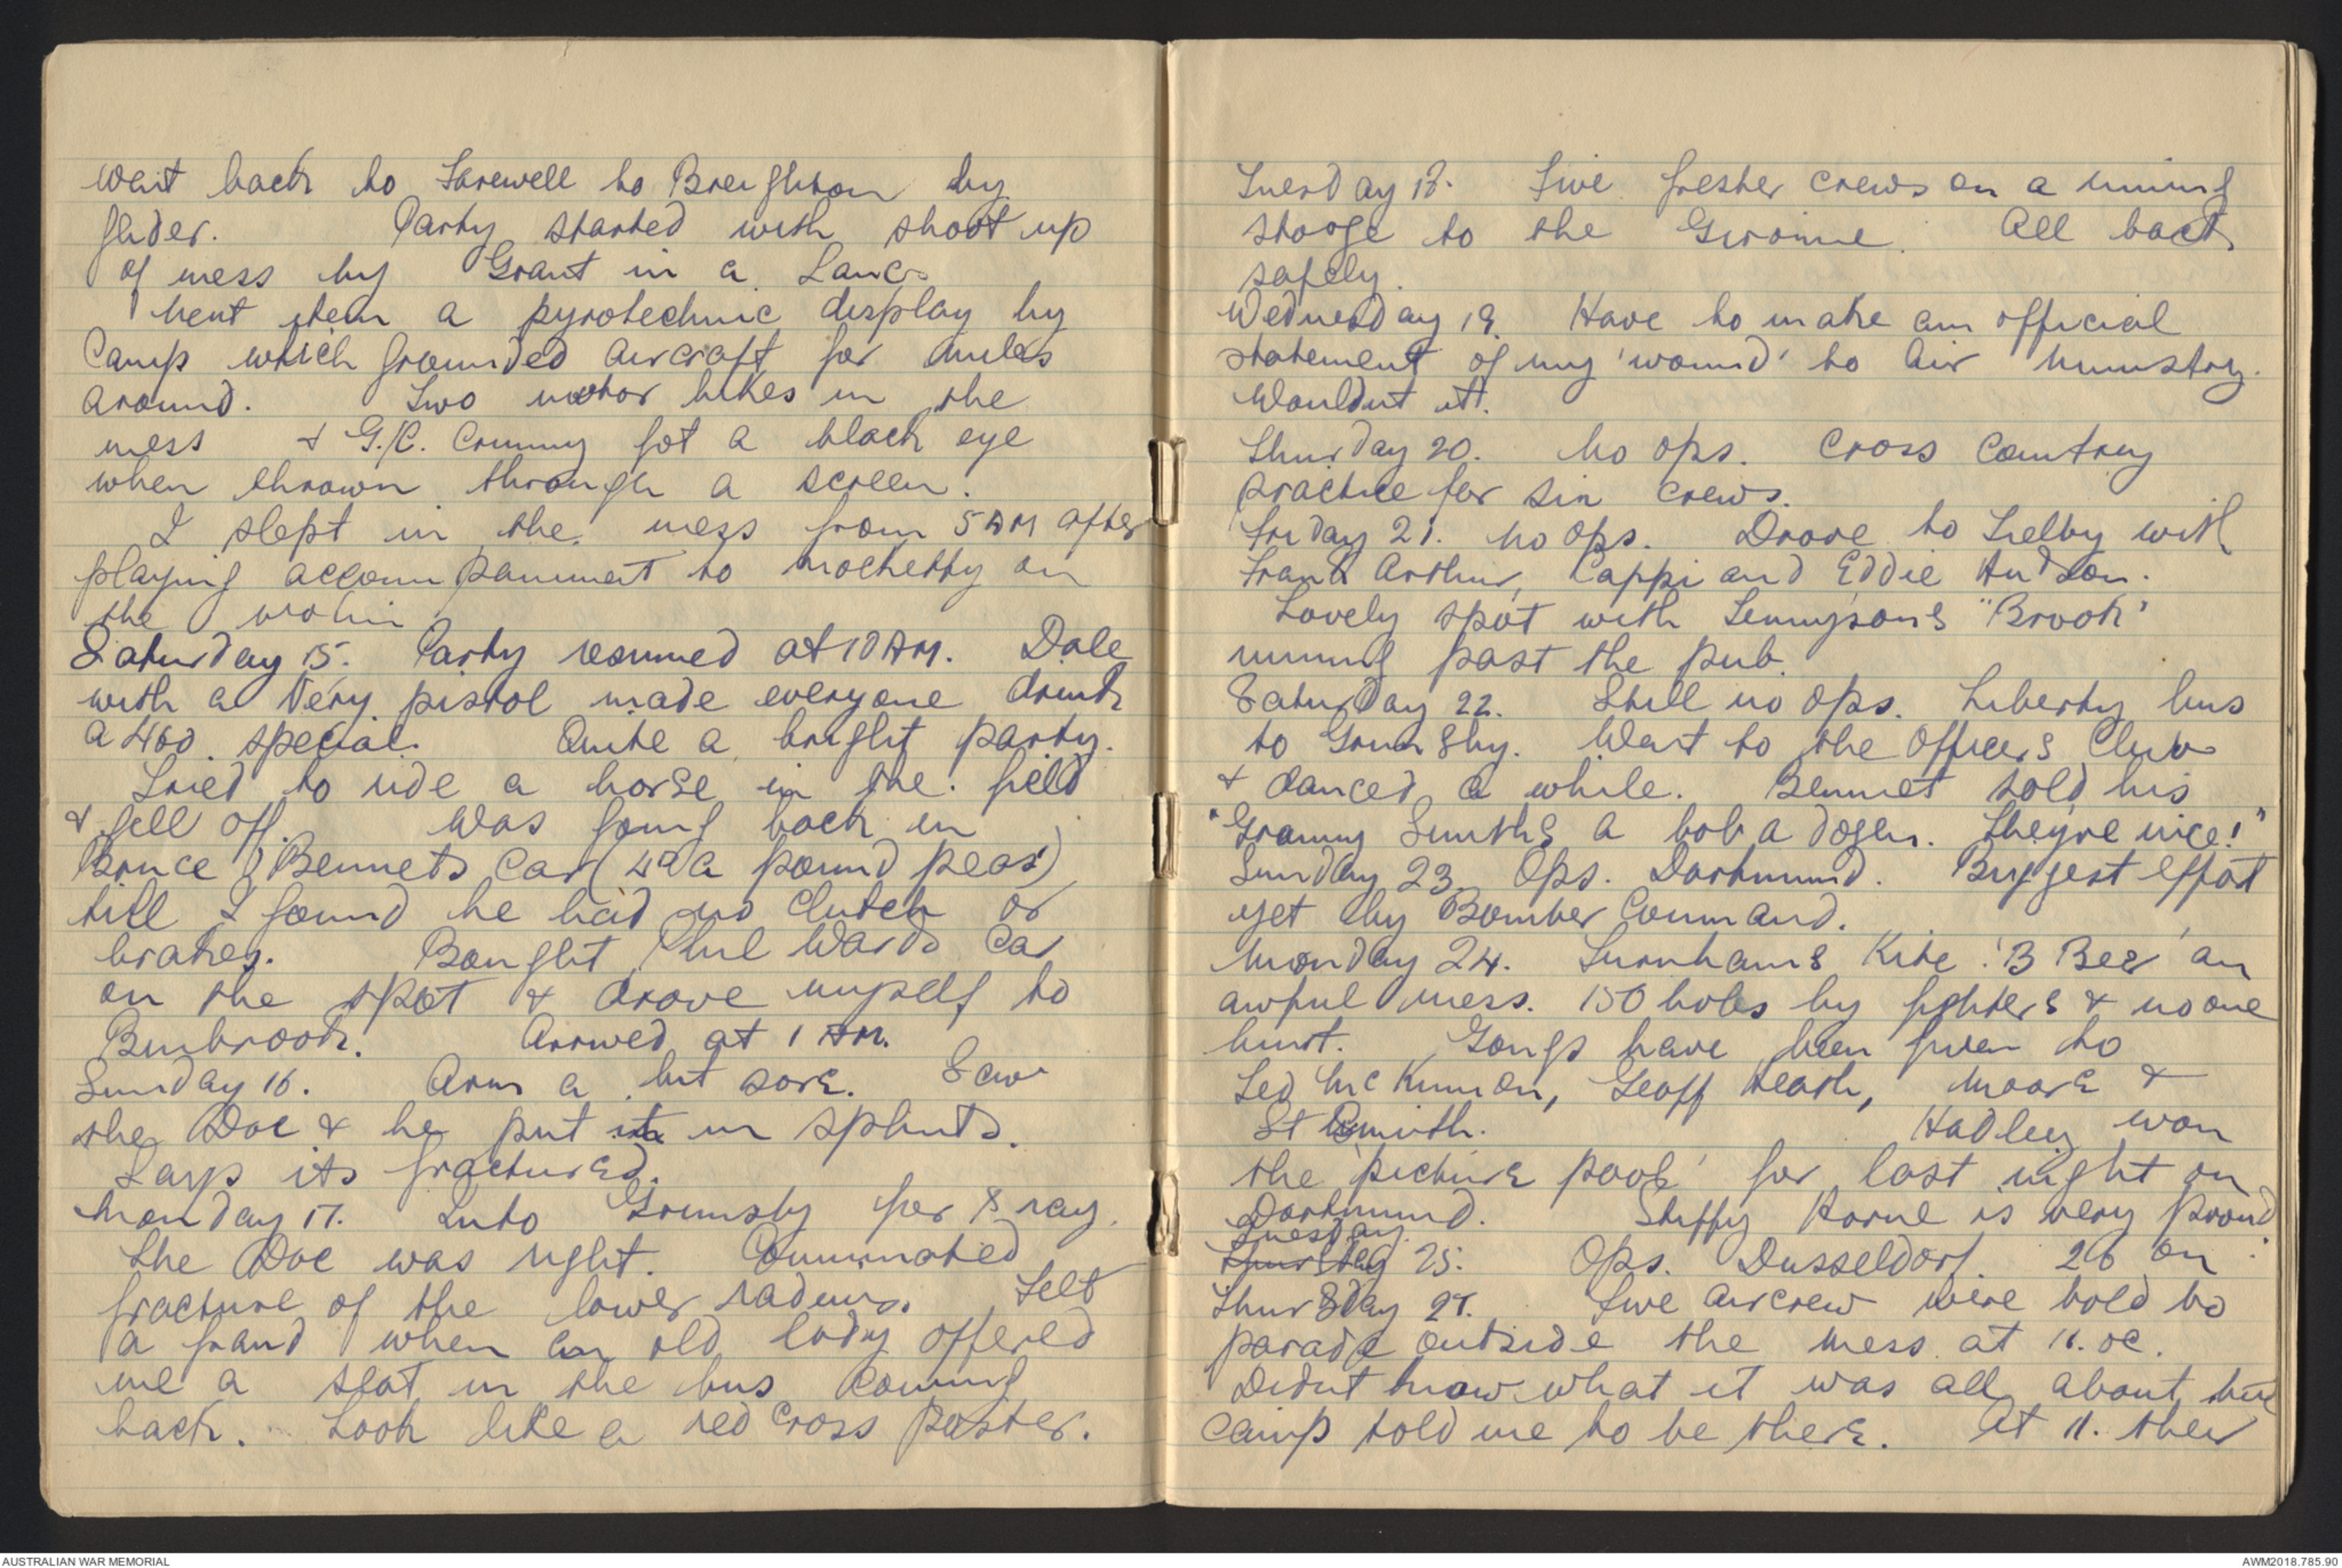 went back to Farewell to Breighton by
glider. Party started with shoot up
of mess by Grant in a Lanc.
Next item a pyrotechnic display by
Camp which grounded aircraft for miles
around. Two motor bikes in the
mess & G./C. Crummy got a black eye
when thrown through a screen.
I slept in the mess from 5 AM after
playing accompaniment to on
the violin
Saturday 15. Party resumed at 10 AM. Dale
with a Very pistol made everyone drink
a 460 special. Quite a bright party.
Tried to ride a horse in the field
& fell off. Was going back in
Bruce Bennets car (4d a pound peas)
till I found he had no clutch or
brakes. Bought Phil Wards car
on the spot & drove myself to
Binbrook. Arrived at 1 AM.
Sunday 16. Arm a bit sore. Saw
the Doc & he put it in splints.
Says its fractured.
Monday 17. Into Grimsby for X ray.
The Doc was right. Comminuted
fracture of the lower radius. Felt
a fraud when an old lady offered
me a seat in the bus coming
back. Look like a red cross poster.
Tuesday 18. Five fresher crews on a mining
stooge to the Gironne. All back
safely.
Wednesday 19. Have to make an official
statement of my 'wound' to Air Ministry.
Wouldnt it!.
Thursday 20. No ops. Cross Country
practice for six crews.
Friday 21. No ops. Drove to Tielby with
Frank Arthur, Cappi and Eddie Hudson.
Lovely spot with Tennysons "Brook"
running past the pub.
Saturday 22. Still no ops. Liberty bus
to Grimsby. Went to the Officers Club
& danced a while. Bennet sold his
"Granny Smiths a bob a dozen. They're nice!"
Sunday 23. Ops. Dortmund. Biggest effort
yet by Bomber Command.
Monday 24. Furnhams Kite 'B Beer' an
awful mess. 150 holes by fighters & no one
hurt. Gongs have been given to
Ted McKinnon, Geoff Heath, Moore &
St Smith. Hadley won
the 'picture pool' for last night on
Dortmund. Stuffy Horne is very proud.
Tuesday
Thursday 25. Ops. Dusseldorf. 26 on
Thursday 27. Five aircrew were told to
parade outside the mess at 11. oc.
Didnt know what it was all about but
Camp told me to be there. At 11. then
AUSTRALIAN WAR MEMORIAL
AWM2018.785.90